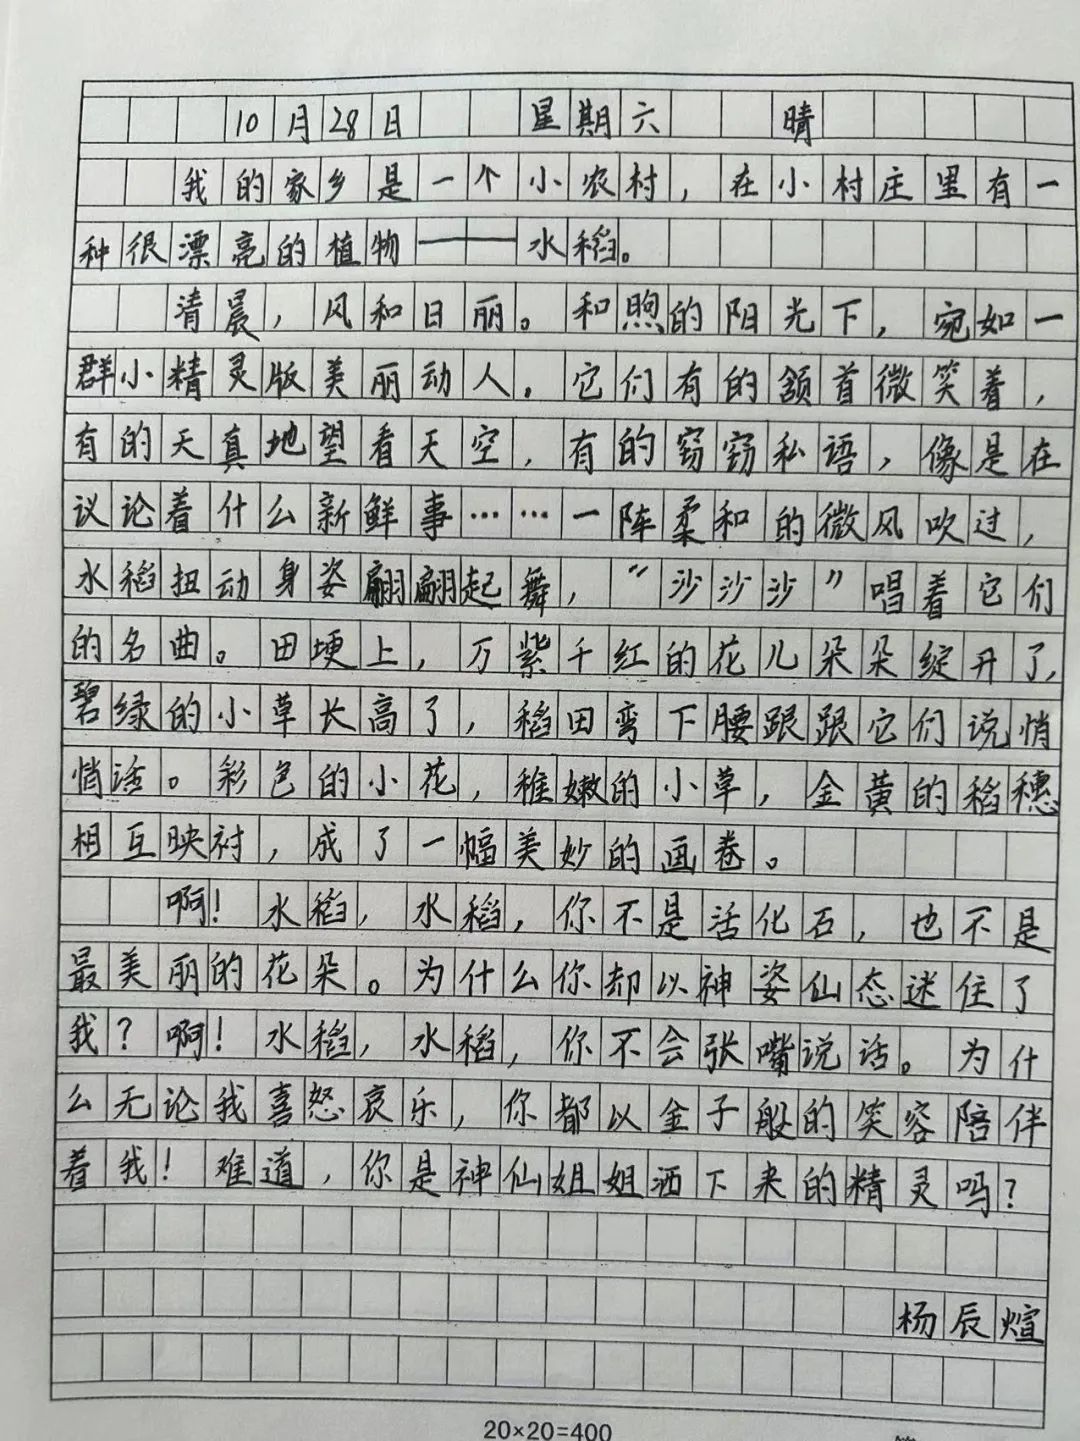 10月28日 星期六 晴
我的家乡是一个小农村，在小村庄里有一
种很漂亮的植物——水稻。
清晨，风和日丽。和煦的阳光下，宛如一
群小精灵版美丽动人。它们有的颔首微笑着，
有的天真地望看天空，有的窃窃私语，像是在
议论着什么新鲜事……一阵柔和的微风吹过，
水稻扭动身姿翩翩起舞，“沙沙沙”唱着它们
的名曲。田埂上，万紫千红的花儿朵朵绽开了，
碧绿的小草长高了，稻田弯下腰跟跟它们说悄
悄话。彩色的小花，稚嫩的小草，金黄的稻穗
相互映衬，成了一幅美妙的画卷。
啊！水稻，水稻，你不是活化石，也不是
最美丽的花朵。为什么你却以神姿仙态迷住了
我？啊！水稻，水稻，你不会张嘴说话。为什
么无论我喜怒哀乐，你都以金子般的笑容陪伴
着我！难道，你是神仙姐姐洒下来的精灵吗？
杨辰煊
20×20=400